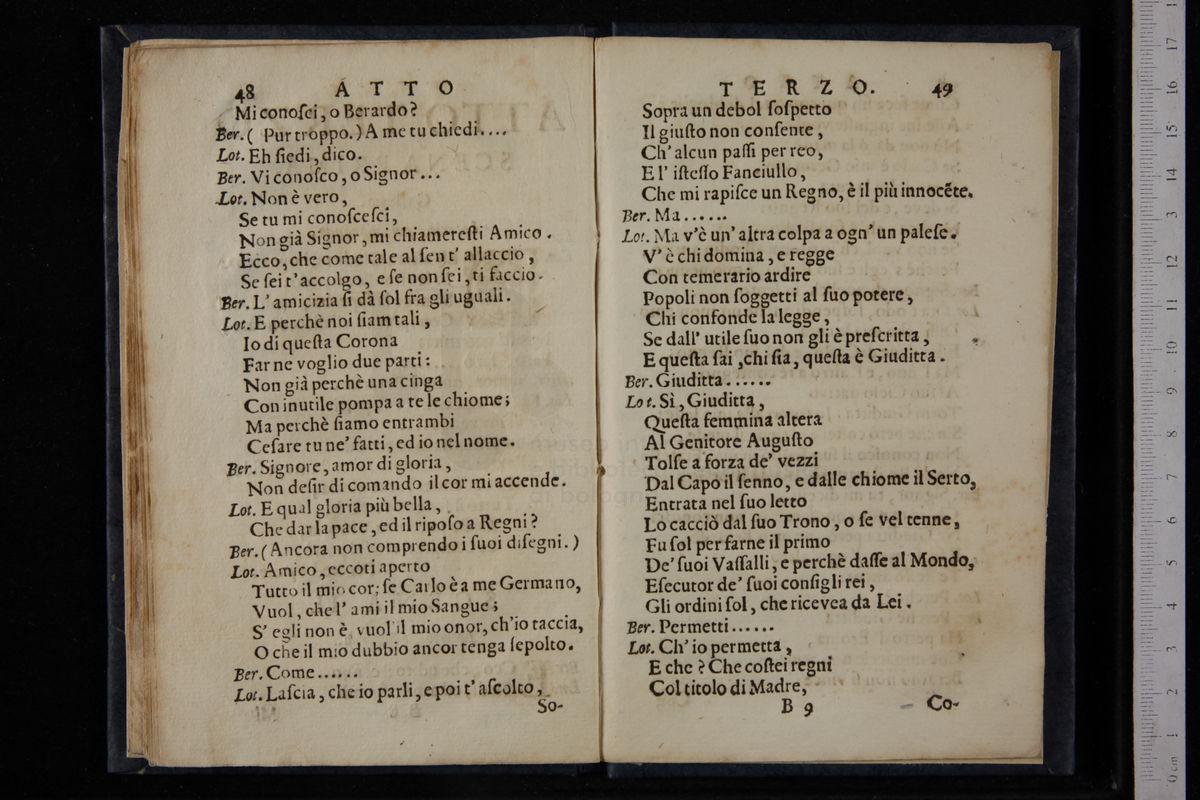 48 ATTO
Mi conoſci, o Berardo?
Ber. ( Pur troppo. ) A me tu chiedi....
Lot. Eh ſiedi, dico.
Ber. Vi conoſco, o Signor...
Lot. Non è vero,
Se tu mi conoſceſci,
Non già Signor, mi chiamereſti Amico.
Ecco, che come tale al ſen t' allaccio,
Se ſei t'accolgo, e ſe non ſei, ti faccio.
Ber. L' amicizia ſi dà ſol fra gli uguali.
Lot. E perchè noi ſiam tali,
Io di queſta Corona
Far ne voglio due parti:
Non già perchè una cinga
Con inutile pompa a te le chiome;
Ma perchè ſiamo entrambi
Ceſare tu ne' fatti, ed io nel nome.
Ber. Signore, amor di gloria,
Non deſir di comando il cor mi accende.
Lot. E qual gloria più bella,
Che dar la pace, ed il ripoſo a Regni?
Ber. (Ancora non comprendo i ſuoi diſegni.)
Lot. Amico, eccoti aperto
Tutto il mio cor: ſe Carlo è a me Germano,
Vuol, che l' ami il mio Sangue;
S' egli non è, vuol il mio onor, ch'io taccia,
O che il mio dubbio ancor tenga ſepolto.
Ber. Come......
Lot. Laſcia, che io parli, e poi t' aſcolto,
So-
TERZO. 49
Sopra un debol ſoſpetto
Il giuſto non conſente,
Ch' alcun paſſi per reo,
E l' iſteſſo Fanciullo,
Che mi rapiſce un Regno, è il più innocẽte.
Ber. Ma......
Lot. Ma v'è un' altra colpa a ogn' un paleſe.
V' è chi domina, e regge
Con temerario ardire
Popoli non ſoggetti al ſuo potere,
Chi confonde la legge,
Se dall' utile ſuo non gli è preſcritta,
E queſta ſai, chi ſia, queſta è Giuditta.
Ber. Giuditta......
Lot. Sì, Giuditta,
Queſta femmina altera
Al Genitore Auguſto
Tolſe a forza de' vezzi
Dal Capo il ſenno, e dalle chiome il Serto,
Entrata nel ſuo letto
Lo cacciò dal ſuo Trono, o ſe vel tenne,
Fu ſol per farne il primo
De' ſuoi Vaſſalli, e perchè daſſe al Mondo,
Eſecutor de' ſuoi conſigli rei,
Gli ordini ſol, che ricevea da Lei.
Ber. Permetti......
Lot. Ch' io permetta,
E che? Che coſtei regni
Col titolo di Madre,
B 9 Co-